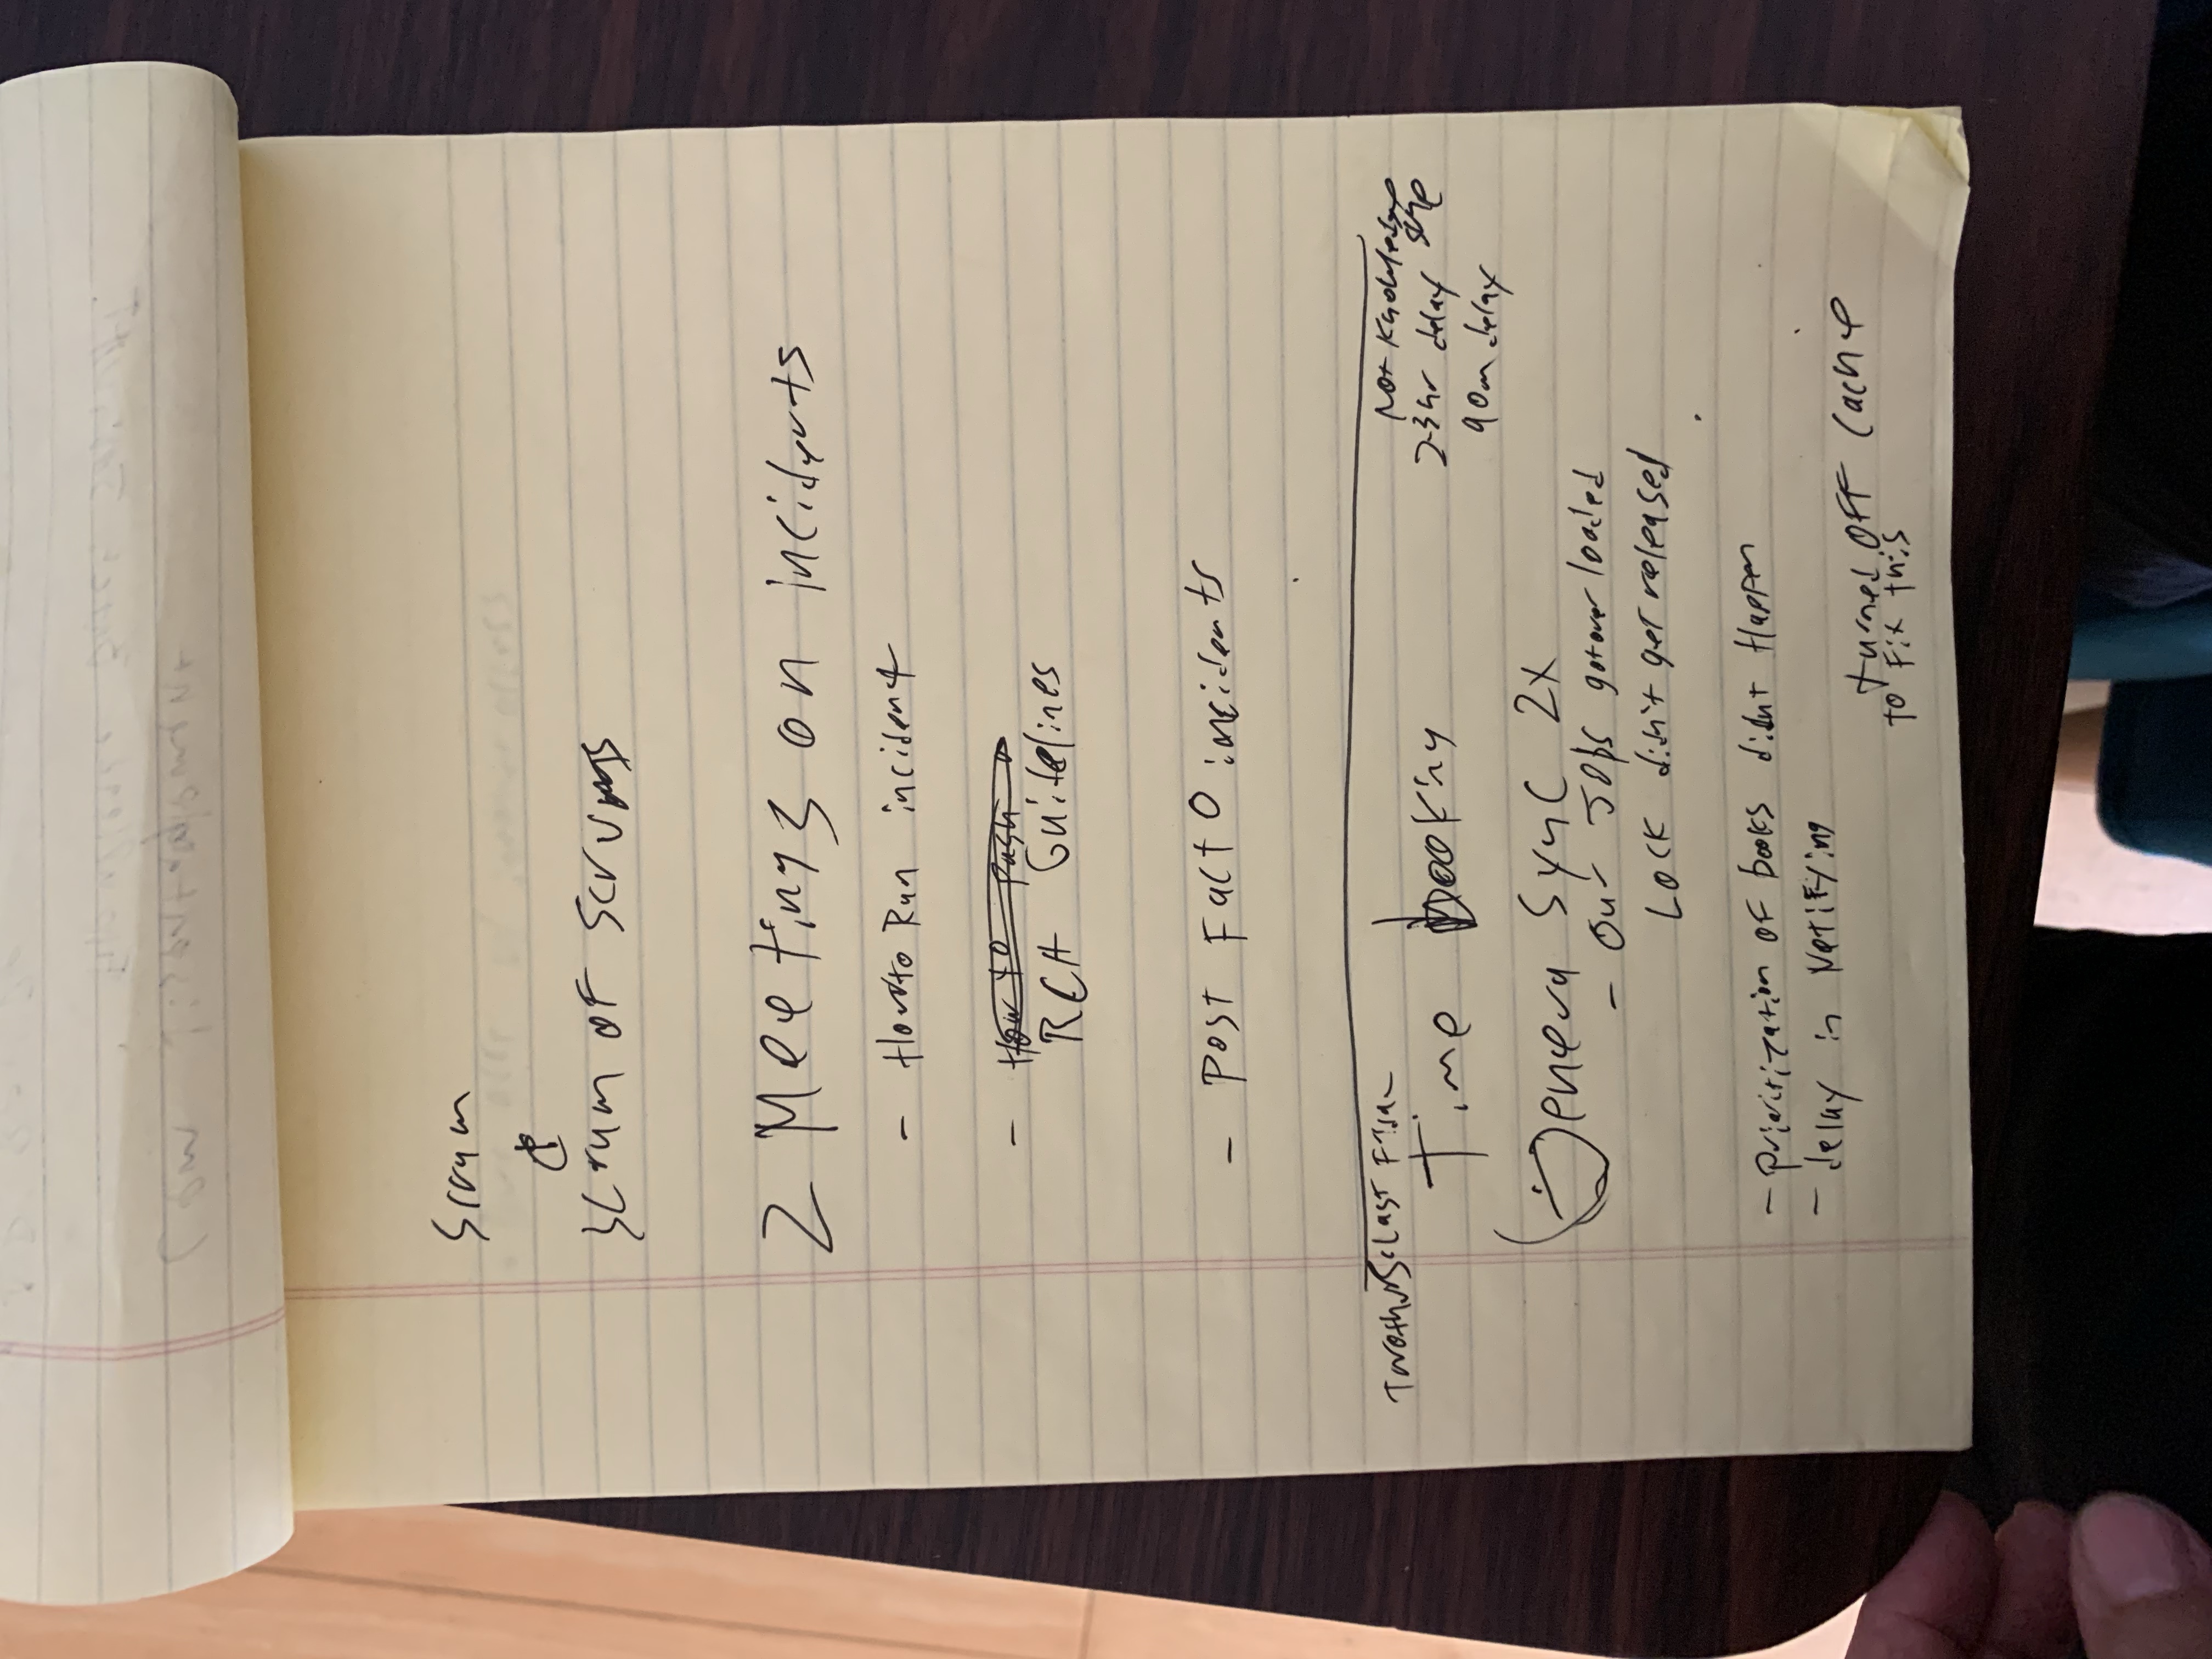 Scrum
Scrum of Scrums
2 Meetings on Incidents
- How to Run incident
- How to push
RCA Guidelines
- Post Facto incidents
Two things Last
Time booking
Not Knowledge
2-3 hr delay
90m delay
Sync 2X
- Our Jobs got over loaded
Lock didnt get released
- prioritization of books didnt Happen
- delay in Notifying
turned off Cache
to Fix this